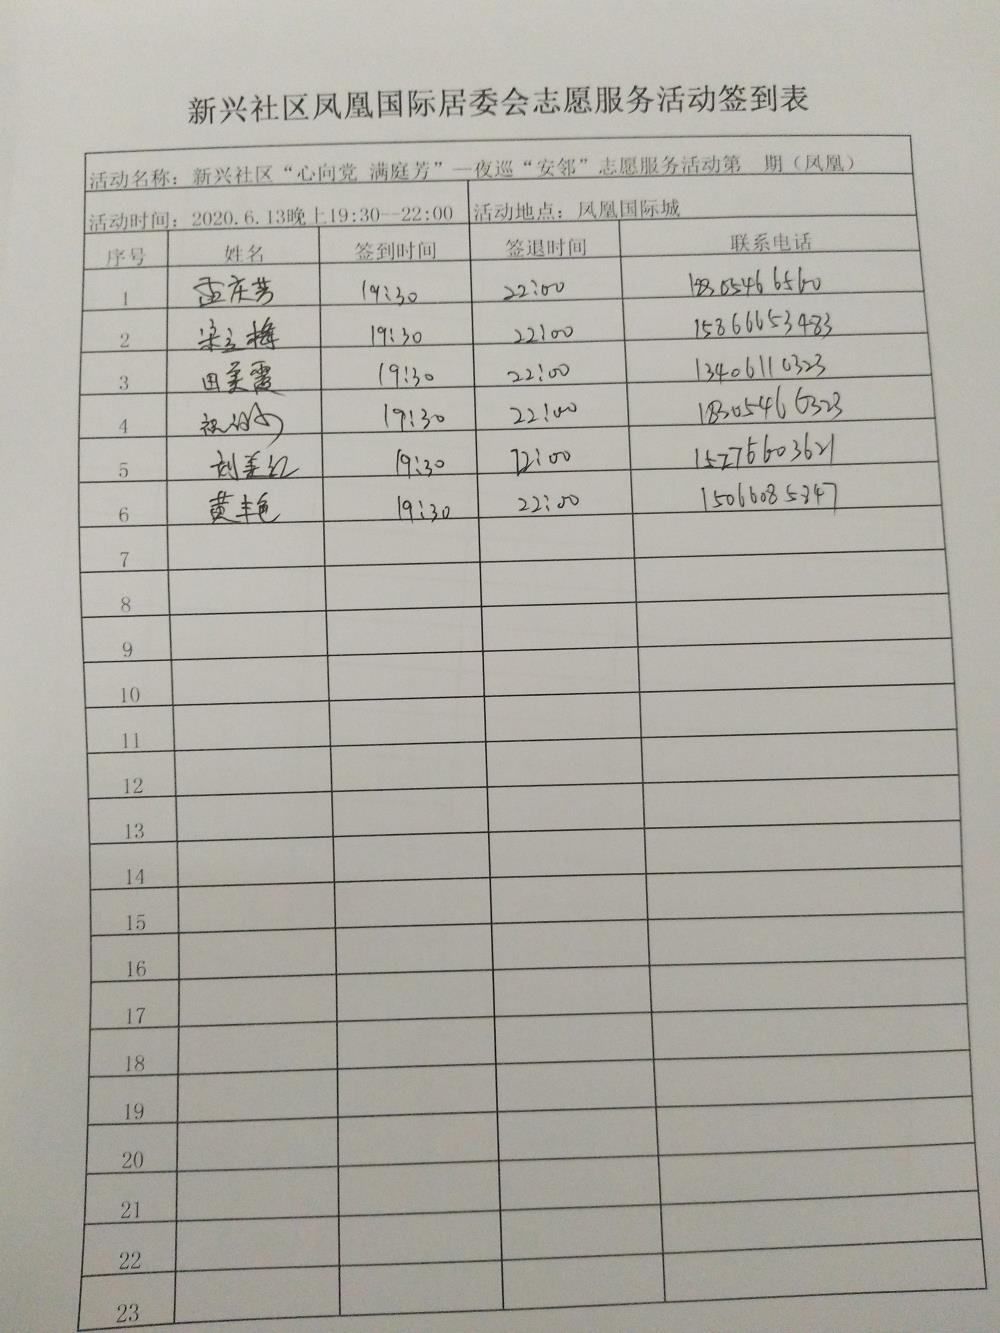 新兴社区凤凰国际居委会志愿服务活动签到表
活动名称：新兴社区“心向党 满庭芳”—夜巡“安邻”志愿服务活动第 期（凤凰）
活动时间：2020.6.13晚上19:30--22:00 活动地点：凤凰国际城
序号 姓名 签到时间 签退时间 联系电话
1 孟庆芳 19:30 22:00 18305466560
2 梁立梅 19:30 22:00 15866653483
3 田美霞 19:30 22:00 13406110323
4 19:30 22:00 18305466323
5 刘美红 19:30 22:00 15275603621
6 黄丰色 19:30 22:00 15066085347
7
8
9
10
11
12
13
14
15
16
17
18
19
20
21
22
23